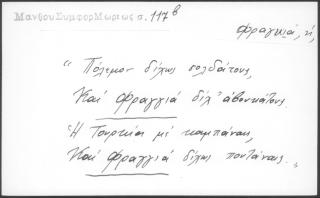 Μανθου Συμφορ Μωρεως σ. 117β
Φραγκιά, ἡ,
"Πόλεμον δίχως σολδάτους,
Καὶ Φραγγιά δίχ' ἀβουκάτους
Ἡ Τουρκία μὲ καμπάναις,
Καὶ Φραγγιά δίχως πουτάναις.